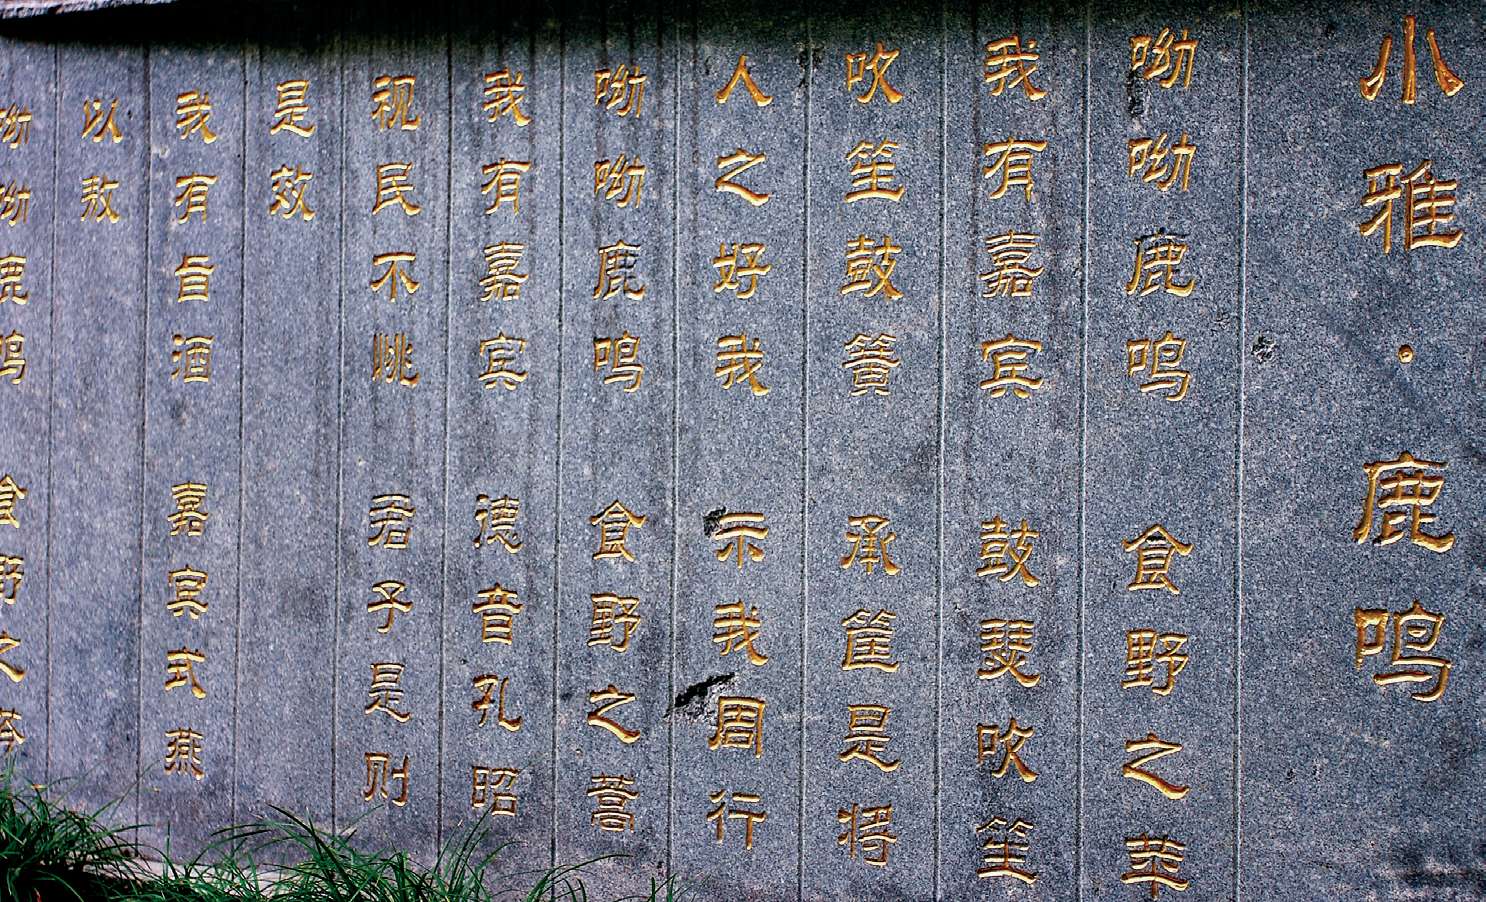 小雅·鹿鸣
呦呦鹿鸣 食野之苹
我有嘉宾 鼓瑟吹笙
吹笙鼓簧 承筐是将
人之好我 示我周行
呦呦鹿鸣 食野之蒿
我有嘉宾 德音孔昭
视民不恌 君子是则
是效
我有旨酒 嘉宾式燕
以敖
呦呦鹿鸣 食野之芩